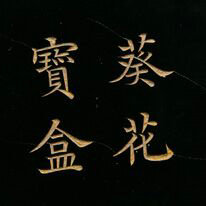 葵花
寶盒